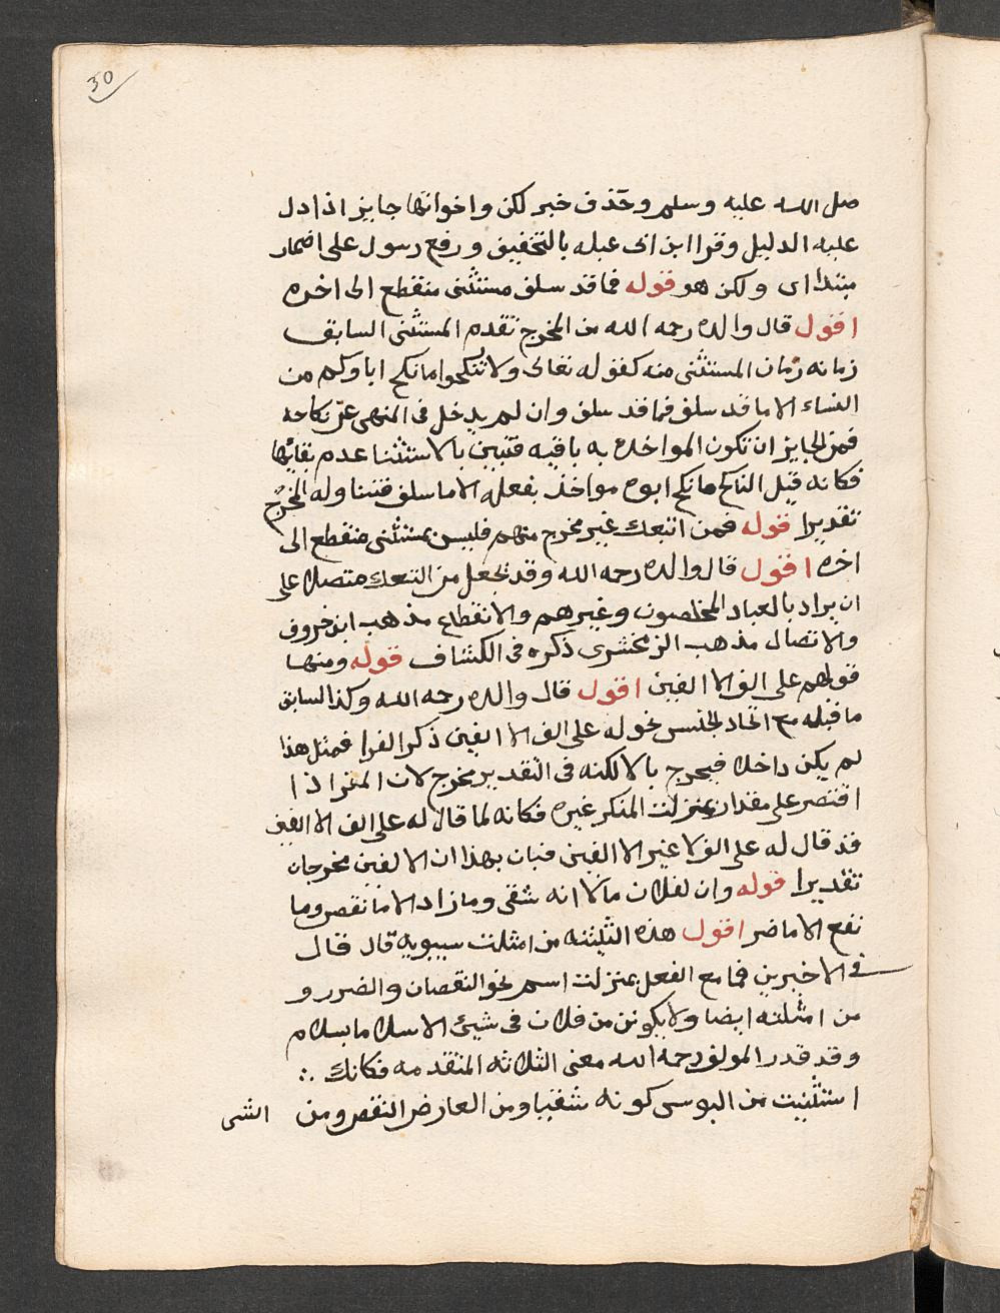 30
صلى الله عليه وسلم وحذف خبر لكن واخواتها جايز اذا دل
عليه الدليل وقرا ابن ابى عبله بالتخفيف ورفع رسول على اضمار
مبتدا اى ولكن هو قوله فما قد سلف مستثنى منقطع الى اخره
اقول قال والده رحمه الله من المخرج تقدم المستثنى السابق
زمانه زمان المستثنى منه كقوله تعالى ولا تنكحوا ما نكح اباوكم من
النساء الا ما قد سلف فما قد سلف وان لم يدخل فى المنهى عن نكاحه
فمن الجايز ان تكون المواخذه به باقيه فتبين بالاستثنا عدم بقائها
فكانه قيل الناكح ما نكح ابوه مواخذ بفعله الا ما سلف فتناوله المخرج
تقديرا قوله فمن اتبعك غير مخرج منهم فليس بمستثنى منقطع الى
اخره اقول قال والده رحمه الله وقد يجعل من اتبعك متصلا على
ان يراد بالعباد المخلصون وغيرهم والانقطاع مذهب ابن خروف
والاتصال مذهب الزمخشرى ذكره فى الكشاف قوله ومنها
قولهم على الف الا الفين اقول قال والده رحمه الله وكذا السابق
ما قبله مع اتحاد الجنس نحو له على الف الا الفين ذكر الفرا فمثل هذا
لم يكن داخلا فيخرج بالا لكنه فى التقدير مخرج لان المقر اذا
اقتصر على مقدار بمنزلت المنكر غيره فكانه لما قال له على الف الا الفين
قد قال له على الف لا غير الا الفين فبان بهذا ان الالفين مخرجان
تقديرا قوله وان لفلان مالا الا انه شقى وما زاد الا ما نقص وما
نفع الا ما ضر اقول هذه الثلثه من امثلت سيبويه قال قال
فى الاخيرين فما مع الفعل بمنزلت اسم نحو النقصان والضرر و
من امثلته ايضا ولا يكونن من فلان فى شيئ الا سلاما بسلام
وقد قدر المولف رحمه الله معنى الثلاثه المتقدمه فكانك ∴
استثنيت من البوسى كونه شقيا ومن العارض النقص ومن
الشى